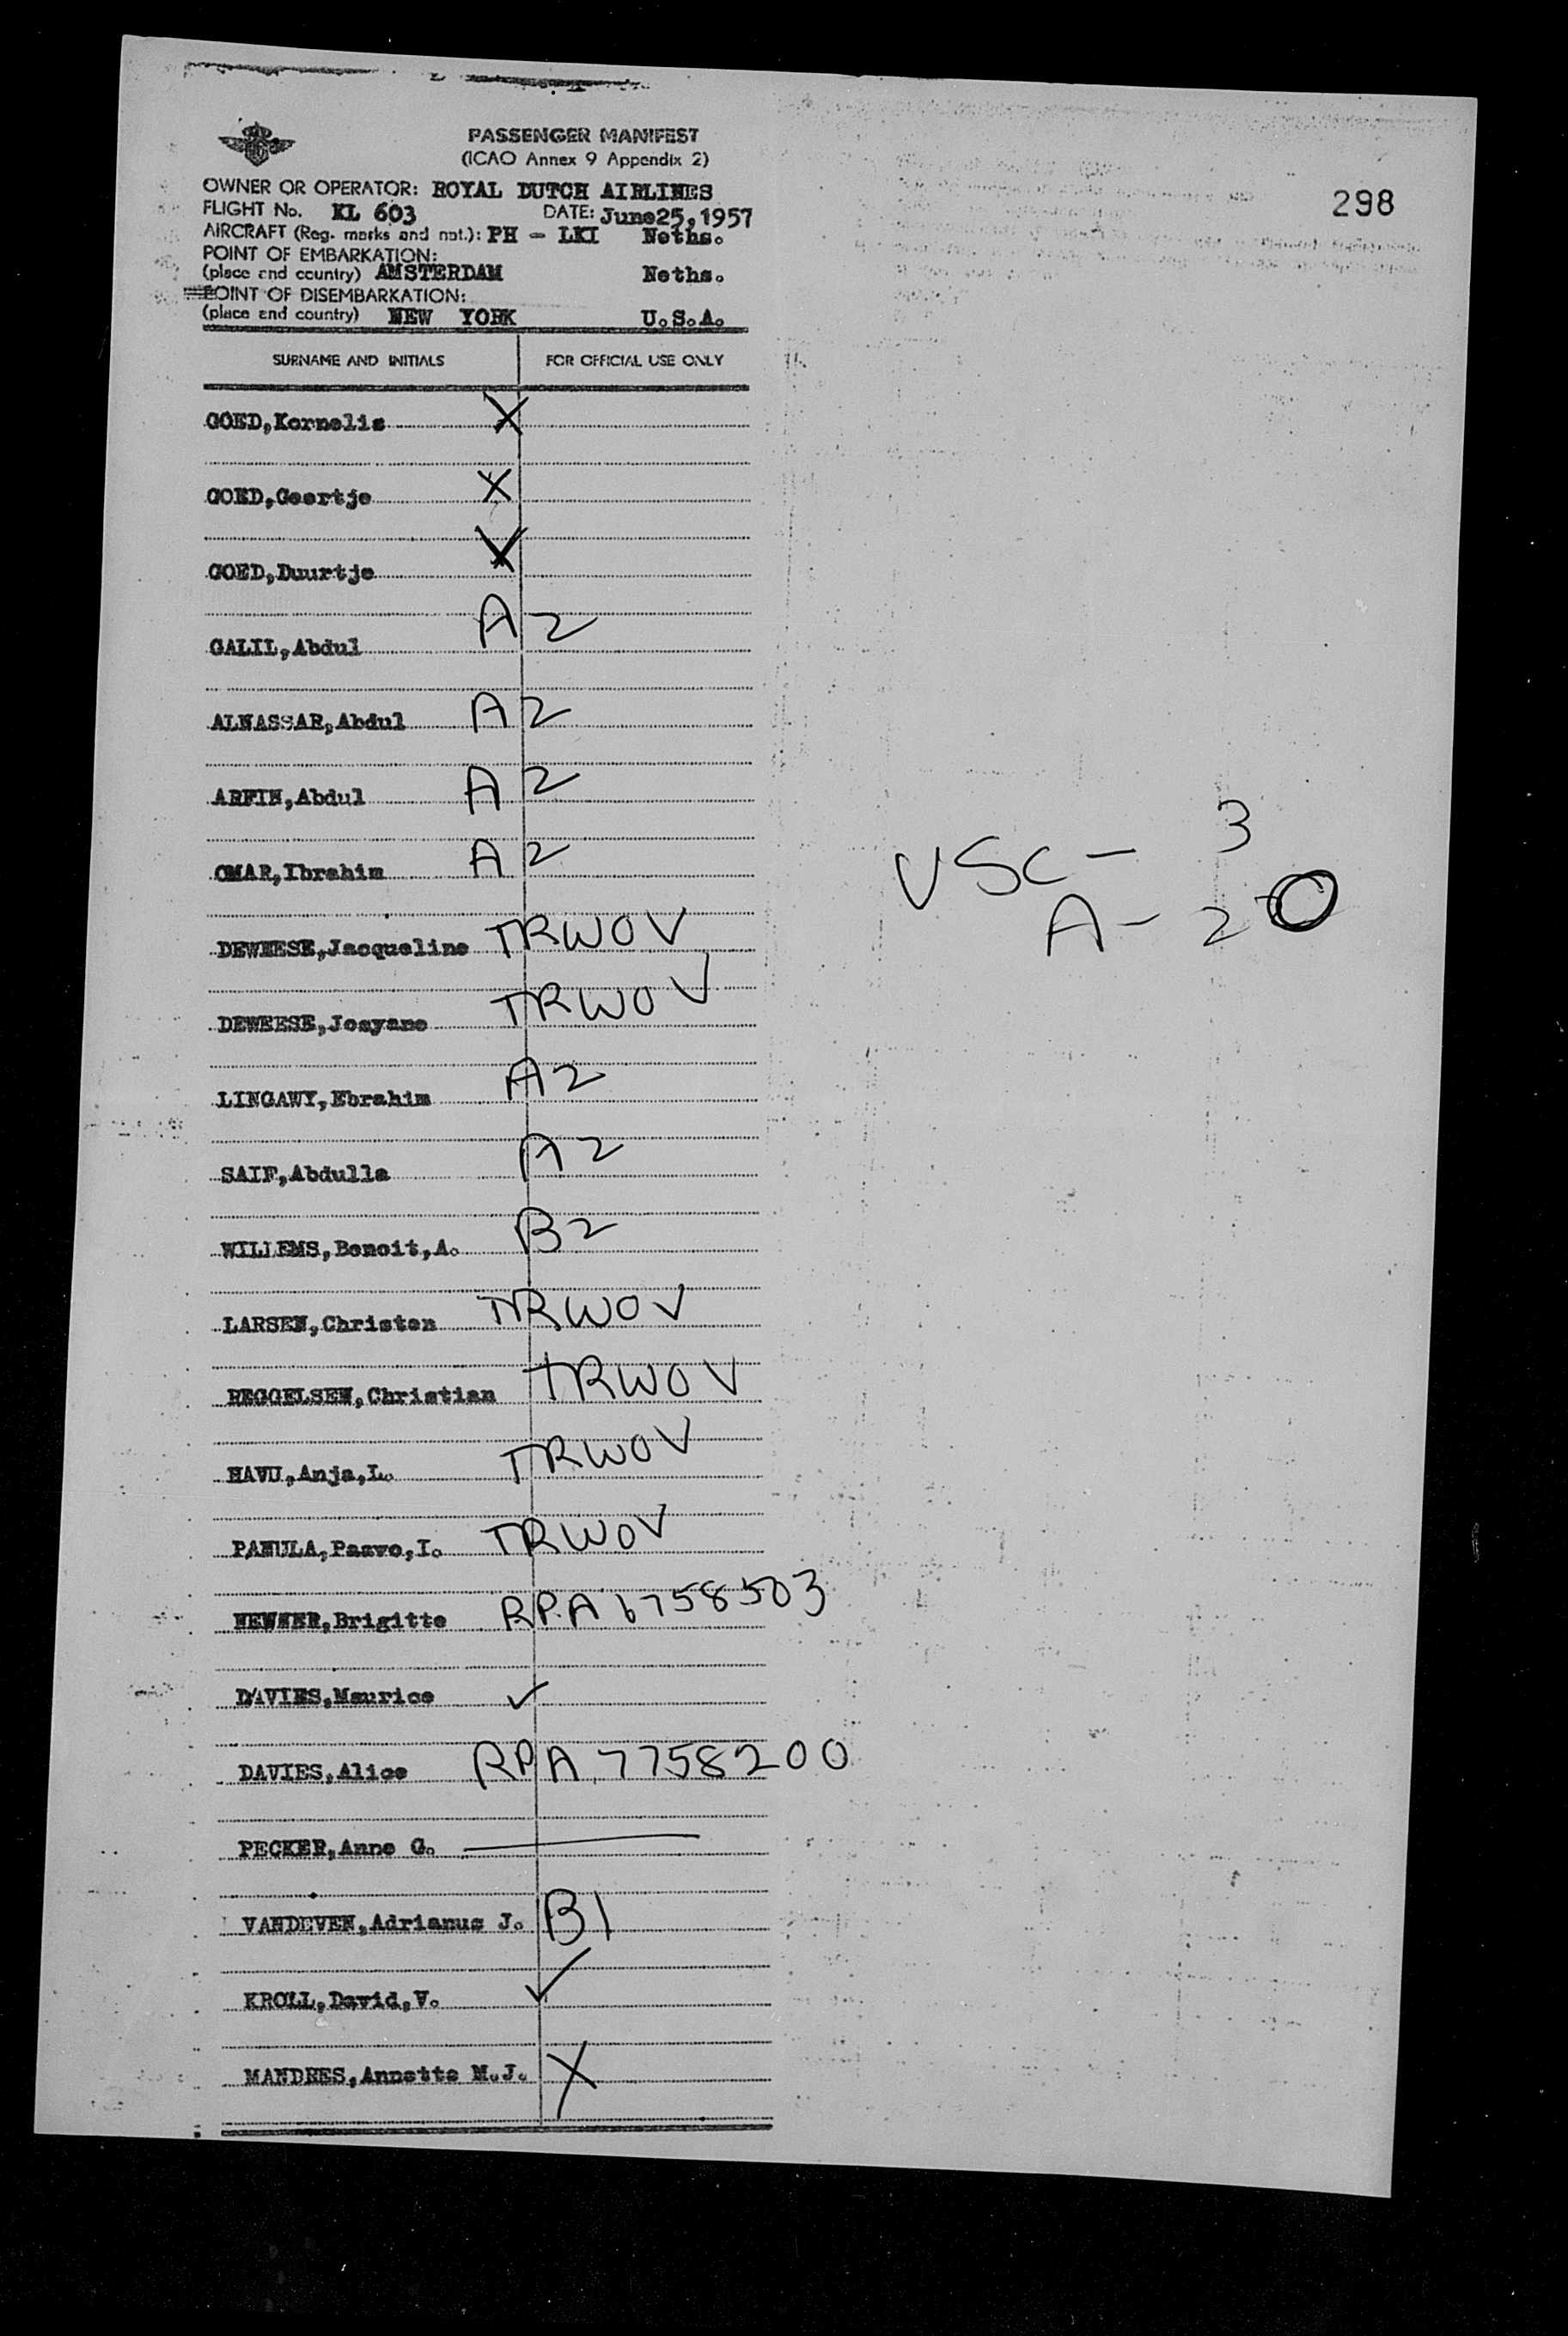 PASSENGER MANIFEST
(ICAO Annex 9 Appendix 2)
298
OWNER OR OPERATOR: ROYAL DUTCH AIRLINES
FLIGHT No. KL 603 DATE: June25,1957
AIRCRAFT (Reg. marks and nat.): PH - LKI Neths.
POINT OF EMBARKATION:
(place and country) AMSTERDAM Neths.
POINT OF DISEMBARKATION:
(place and country) NEW YORK U.S.A.
SURNAME AND INITIALS FOR OFFICIAL USE ONLY
GOED,Kornelis X
GOED,Geertje X
GOED,Duurtje X
GALIL,Abdul A2
ALNASSAR,Abdul A2
ARFIN,Abdul A2
USC - 3
OMAR,Ibrahim A2
A - 20
DEWEESE,Jacqueline TRWOV
DEWEESE,Josyane TRWOV
LINGAWY,Ebrahim A2
SAIF,Abdulla A2
WILLEMS,Benoit,A. B2
LARSEN,Christen TRWOV
REGGELSEN,Christian TRWOV
HAVU,Anja,L. TRWOV
PANULA,Paavo,I. TRWOV
NEWNER,Brigitte RPA 6758503
DAVIES,Maurice ✓
DAVIES,Alice RPA 7758200
PECKER,Anne G.
VANDEVEN,Adrianus J. B1
KROLL,David,V. ✓
MANDRES,Annette M.J. X